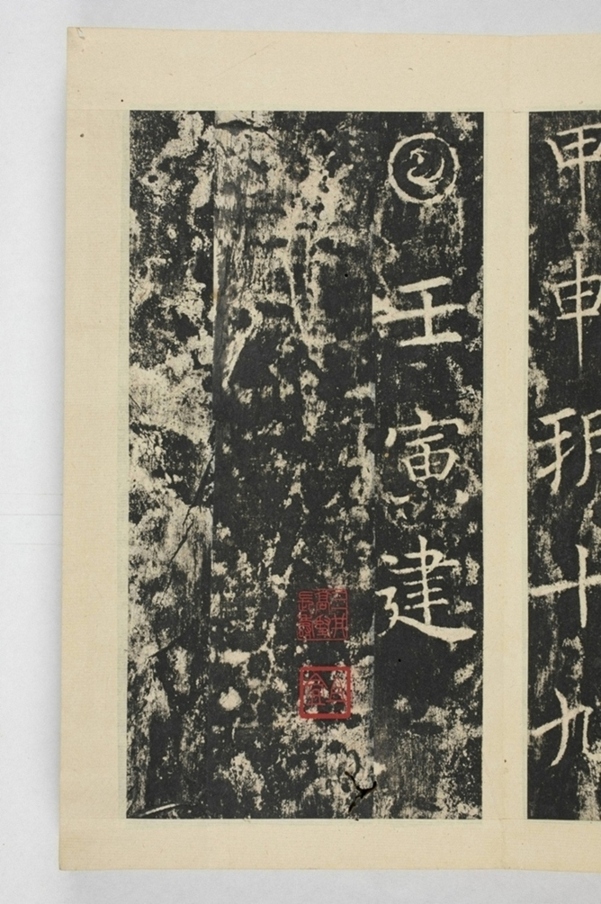 甲申朔十九
𡆠壬寅建